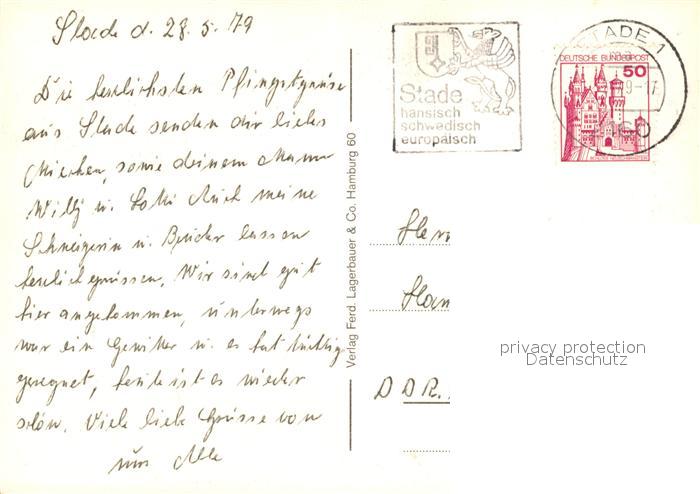 Stade d. 28.5.79
Die herzlichsten Pfingstgrüse
aus Stade senden dir liebes
Miechen, sowie deinem Mann
Willy u. Lotti Auch meine
Schwiegerin u. Bruder lassen
herzlich grüssen. Wir sind gut
hier angekommen, unterwegs
war ein Gewitter u. es hat tüchtig
geregnet, heute ist es wieder
schön. Viele liebe Grüsse von
uns Alle
Verlag Ferd. Lagerbauer & Co. Hamburg 60
Stade
hansisch
schwedisch
europäisch
STADE 1
DEUTSCHE BUNDESPOST
50
SCHLOSS NEUSCHWANSTEIN
DDR.
privacy protection
Datenschutz